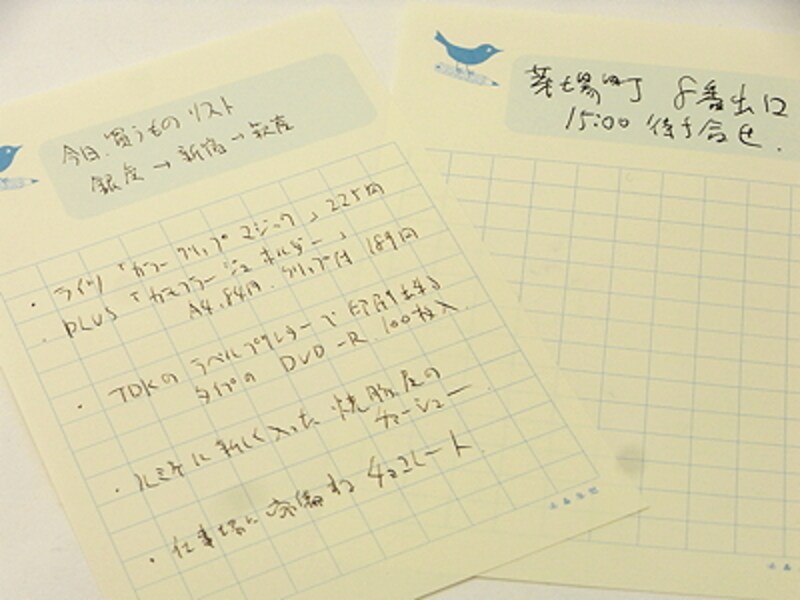 今日買うものリスト
銀座→新宿→銀座
・ライツ「カラークリップマジック」225円
・PLUS「カモフラージュホルダー」
A4.84円.クリップ付 189円
・TDKのラベルプリンターで印刷出来る
タイプのDVD-R.100枚入
・ルミネに新しく入った焼豚屋の
チャーシュー
・仕事場に常備するチョコレート
茅場町 8番出口
15:00 待ち合せ.